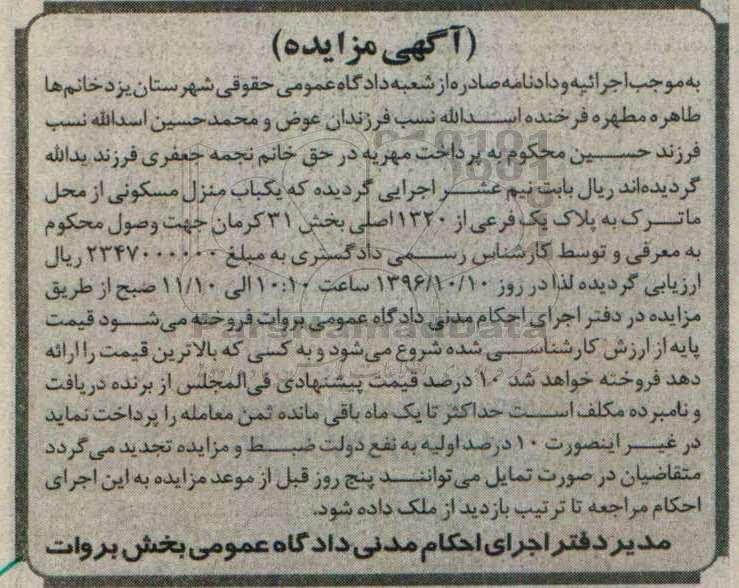 (آگهی مزایده)
به موجب اجرائیه و دادنامه صادره از شعبه دادگاه عمومی حقوقی شهرستان یزد خانم ها
طاهره مطهره فرخنده اسدالله نسب فرزندان عوض و محمدحسین اسدالله نسب
فرزند حسین محکوم به پرداخت مهریه در حق خانم نجمه جعفری فرزند یدالله
گردیده‌اند ریال بابت نیم عشر اجرایی گردیده که یکباب منزل مسکونی از محل
ماترک به پلاک یک فرعی از ۱۳۲۰ اصلی بخش ۳۱ کرمان جهت وصول محکوم
به معرفی و توسط کارشناس رسمی دادگستری به مبلغ ۲۳۴۷۰۰۰۰۰۰ ریال
ارزیابی گردیده لذا در روز ۱۳۹۶/۱۰/۱۰ ساعت ۱۰:۱۰ الی ۱۱/۱۰ صبح از طریق
مزایده در دفتر اجرای احکام مدنی دادگاه عمومی بروات فروخته می‌شود قیمت
پایه از ارزش کارشناسی شده شروع می‌شود و به کسی که بالاترین قیمت را ارائه
دهد فروخته خواهد شد ۱۰ درصد قیمت پیشنهادی فی‌المجلس از برنده دریافت
و نامبرده مکلف است حداکثر تا یک ماه باقی مانده ثمن معامله را پرداخت نماید
در غیر اینصورت ۱۰ درصد اولیه به نفع دولت ضبط و مزایده تجدید می‌گردد
متقاضیان در صورت تمایل می‌توانند پنج روز قبل از موعد مزایده به این اجرای
احکام مراجعه تا ترتیب بازدید از ملک داده شود.
مدیر دفتر اجرای احکام مدنی دادگاه عمومی بخش بروات